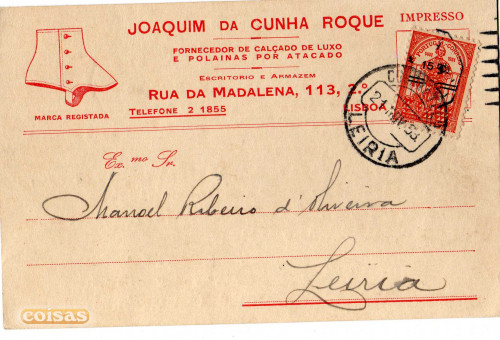 JOAQUIM DA CUNHA ROQUE
IMPRESSO
FORNECEDOR DE CALÇADO DE LUXO
E POLAINAS POR ATACADO
ESCRITORIO E ARMAZEM
RUA DA MADALENA, 113, 2.º
LISBOA
MARCA REGISTADA
TELEFONE 2 1855
LEIRIA
Ex.mo Sr.
Manoel Ribeiro d'Oliveira
Leiria
coisas